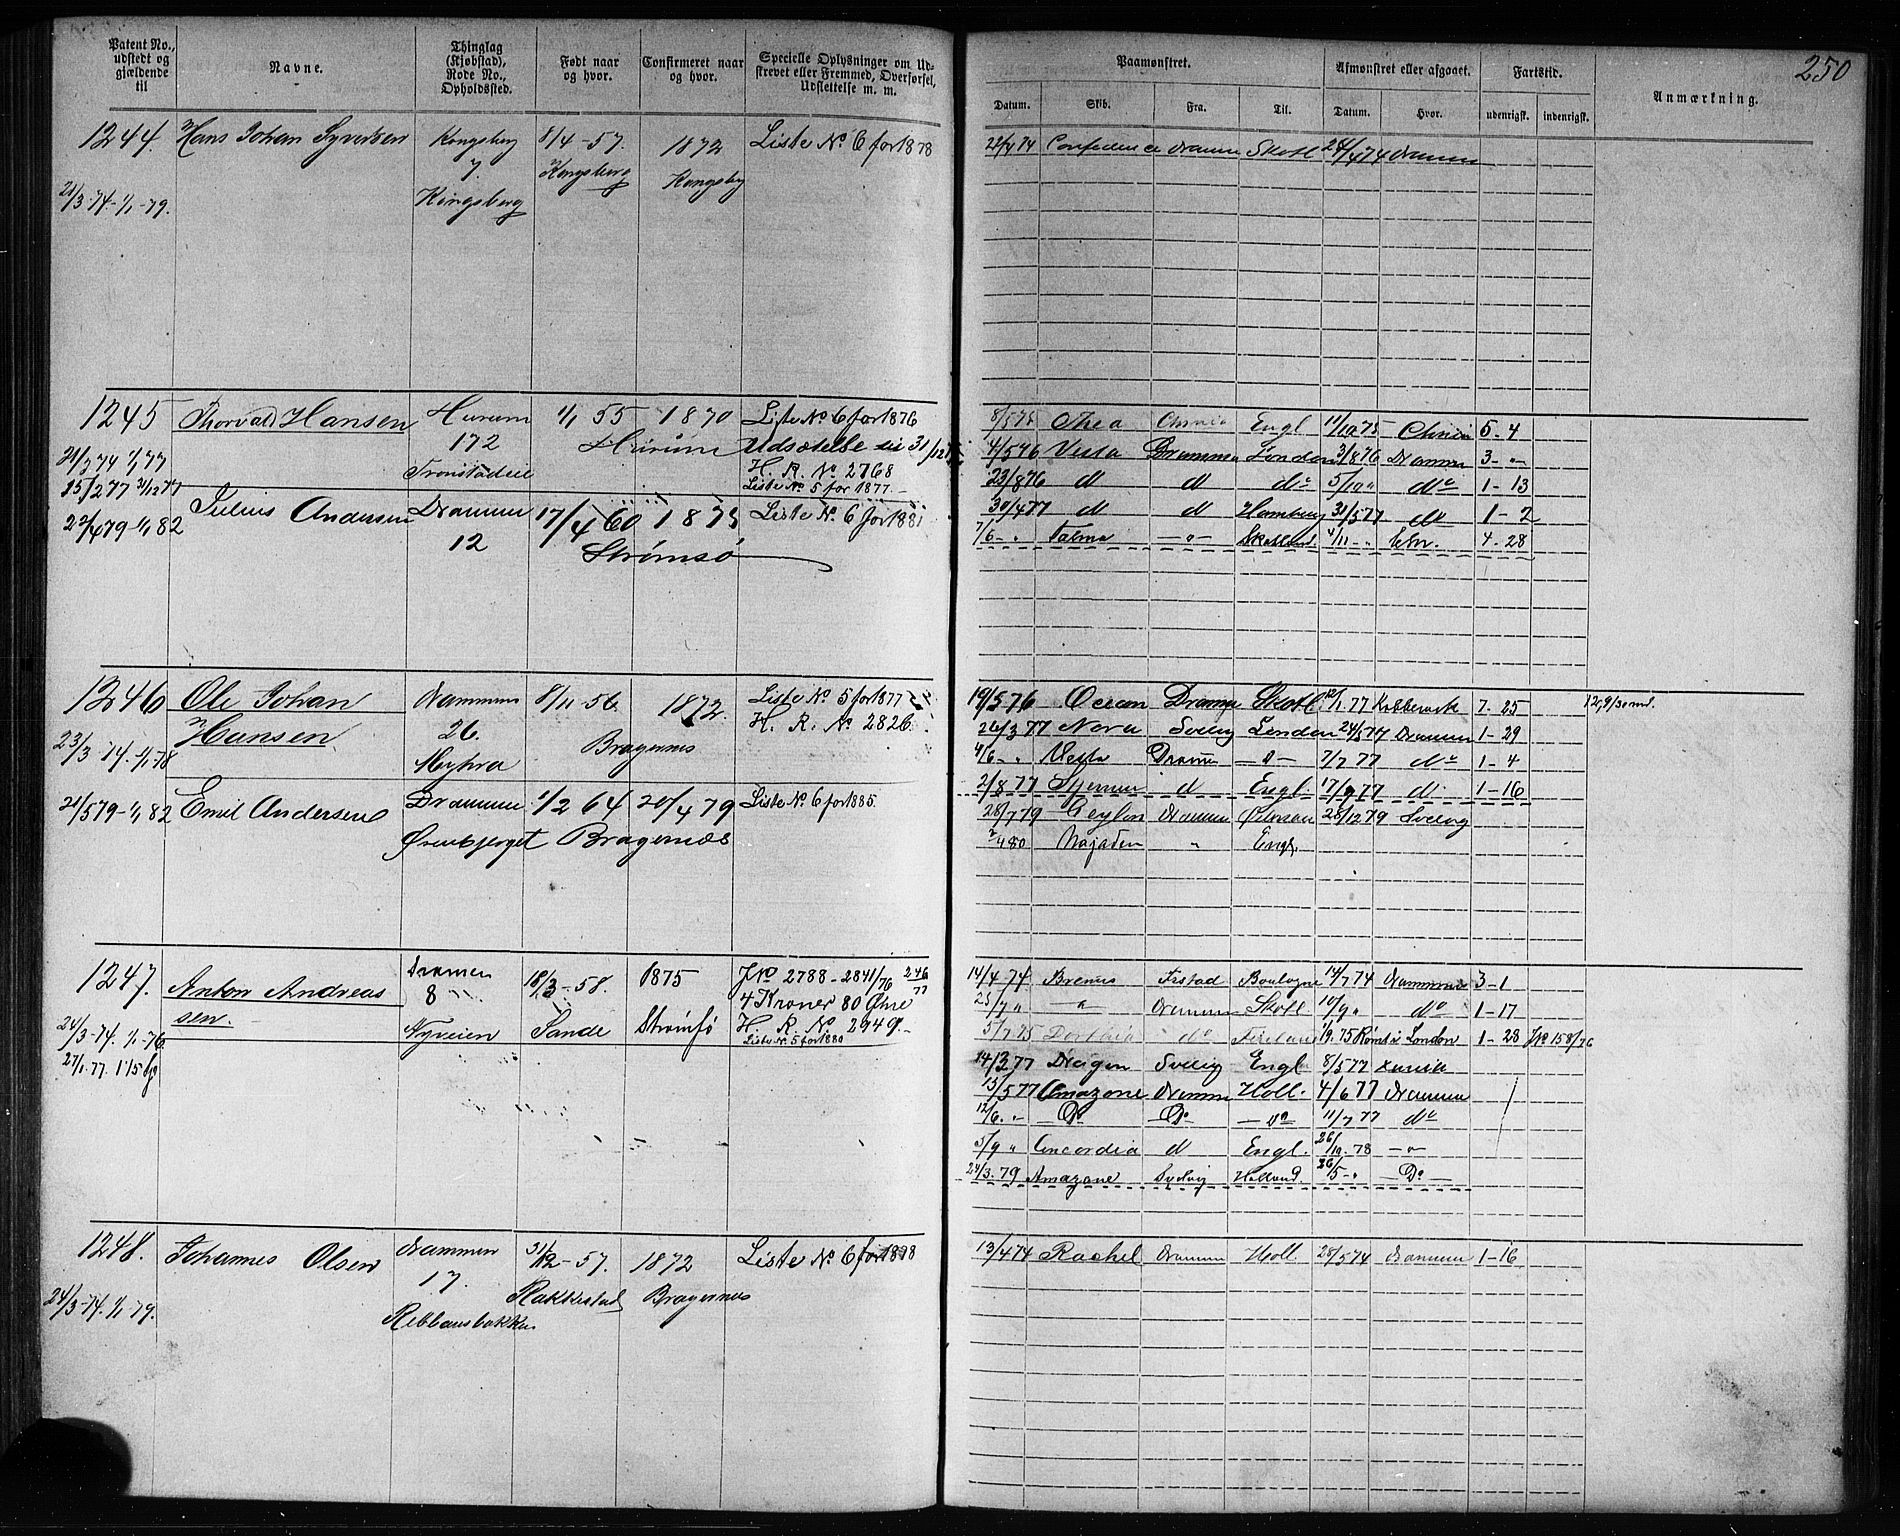 250
Patent No., udstedt og gjældende til
Navne.
Thinglag (Kjøbstad), Rode No., Opholdssted.
Født naar og hvor.
Confirmeret naar og hvor.
Specielle Oplysninger om Udskrevet eller Fremmed, Overførsel, Udslettelse m. m.
Paamønstret.
Afmønstret eller afgaaet.
Fartstid.
Anmærkning.
Datum. Skib. Fra. Til. Datum. Hvor. udenrigsk. indenrigsk.
1244. Hans Johan Syversen Kongsberg 8/4-57. 1872 Liste No 6 for 1878
7. Kongsberg Kongsberg
21/3-74-1/1-79. Kongsberg
22/4 74 Confidence Dramm Skotl 24/4 74 Dramm
1245 Thorvald Hansen Hurum 1/1 55 1870 Liste No 6 for 1876
172 Hurum Udsættelse til 31/12
21/3 74 1/1 77 Tronstadeie H. R. No 2768
15/2 77 31/12 77 Liste No 5 for 1877.
Julius Andersen Drammen 17/4 60 1875 Liste No 6 for 1881
79 1/1 82 12 Strømsø
8/5 75 Thea Chrnia Engl 11/10 75 Chrnia 5-4
4/5 76 Vesta Drammen London 3/8 76 Drammen 3-"
23/8 76 d d do 5/10 " do 1-13
30/4 77 d d Hamburg 31/5 77 do 1-2
7/6 " -"- Skotland. 4/11 - " 4-28
1246 Ole Johan Drammen 8/11 56. 1872. Liste No 5 for 1877
Hansen 26. H. R. No 2826.
23/3-74.-1/1-78 Myhra Bragernes
21/5 79-1/1 82 Emil Andersen Drammen 1/2 64 20/4 79 Liste No 6 for 1885.
Ørenbjerget Bragernæs
19/5 76 Ocean Dramm Skotl. 77 Kobbervik 7-25
26/3 77 Nora Svelvig London 24/5 77 Drammen 1-29
4/6 - " Vesta Dramm -"- 7/7 77 do 1-4
2/8 77 Stjernen d Engl. 17/9 77 d. 1-16
28/7 79 Ceylon Drammen 28/12 79 Svelvig
480 Najaden " Engl.
1247. Anton Andreas- Dramen 18/3-58. 1875 J No 2788-2841/76 246/77
sen. 8 4 Kroner 80 Øre
24/3-74. 1/1-76 Nyveien Sande Strømsø H. R. No 2949.-
27/1. 77. Liste No 5 for 1880
14/4 74 Brenus Frstad Boulogne 14/7 74 Drammen 3-1
25/7 " -"- Drammen Skotl 10/9 " do 1-17
5/7 75 do 1/9. 75 Rømt i London 1-28 J No 158/76
14/3 77 Dragen Svelvig Engl 8/5 77
13/5 77 Amazone Dramm Holl. 4/6 77 Drammen
12/6. " Do Do -"- 11/7 77 do
5/9 " Concordia d Engl. 26/10. 78 -"-
24/3. 79 Amazone Svelvig Holland. 26/5 - " -Do-
1248. Johannes Olsen Drammen 31/12-57. 1872 Liste No 6 for 1878
17. Rakkestad Bragernes
24/3-74. 1/1-79. Ribbansbakken
13/4 74 Rachel Drammen Holl 28/5 74 Drammen 1-16